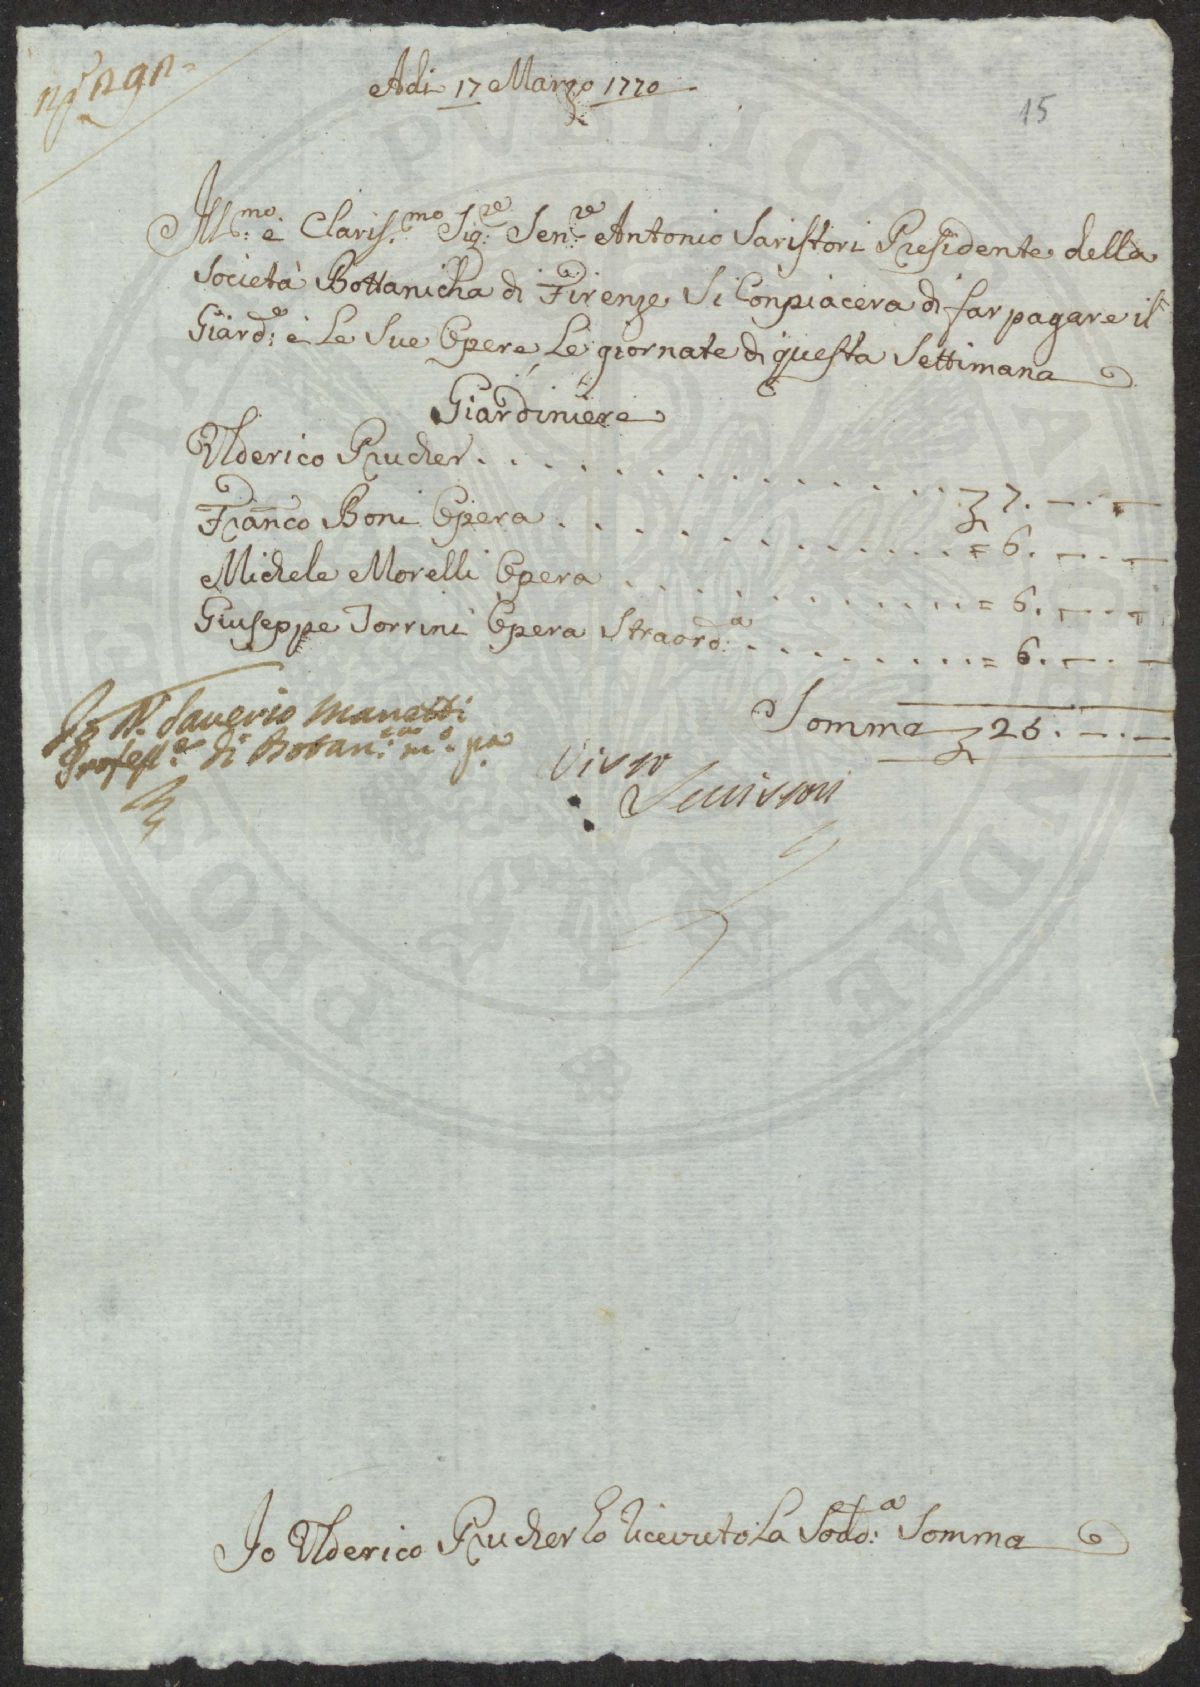 Adi 17 Marzo 1770
15
Ill.mo e Claris.mo Sig.re Sen.re Antonio Saristori Presidente della
Società Bottanicha di Firenze Si Conpiacera di far pagare il
Giard.e e Le Sue Opere Le giornate di questa Settimana
Giardiniere
Ulderico Prucher . . . . . . . . . . . . . . . 7. — . —
Franco Boni Opera . . . . . . . . . . . . . = 6. — . —
Michele Morelli Opera . . . . . . . . . . . = 6. — . —
Giuseppe Torrini Opera Straord.a . . . . . . . . = 6. — . —
Somma 25. — . —
Io D. Saverio Manetti
Profess.e di Botan.ca m.o pa
Visto
Io Ulderico Prucher ho Ricevuto La Sodd.a Somma